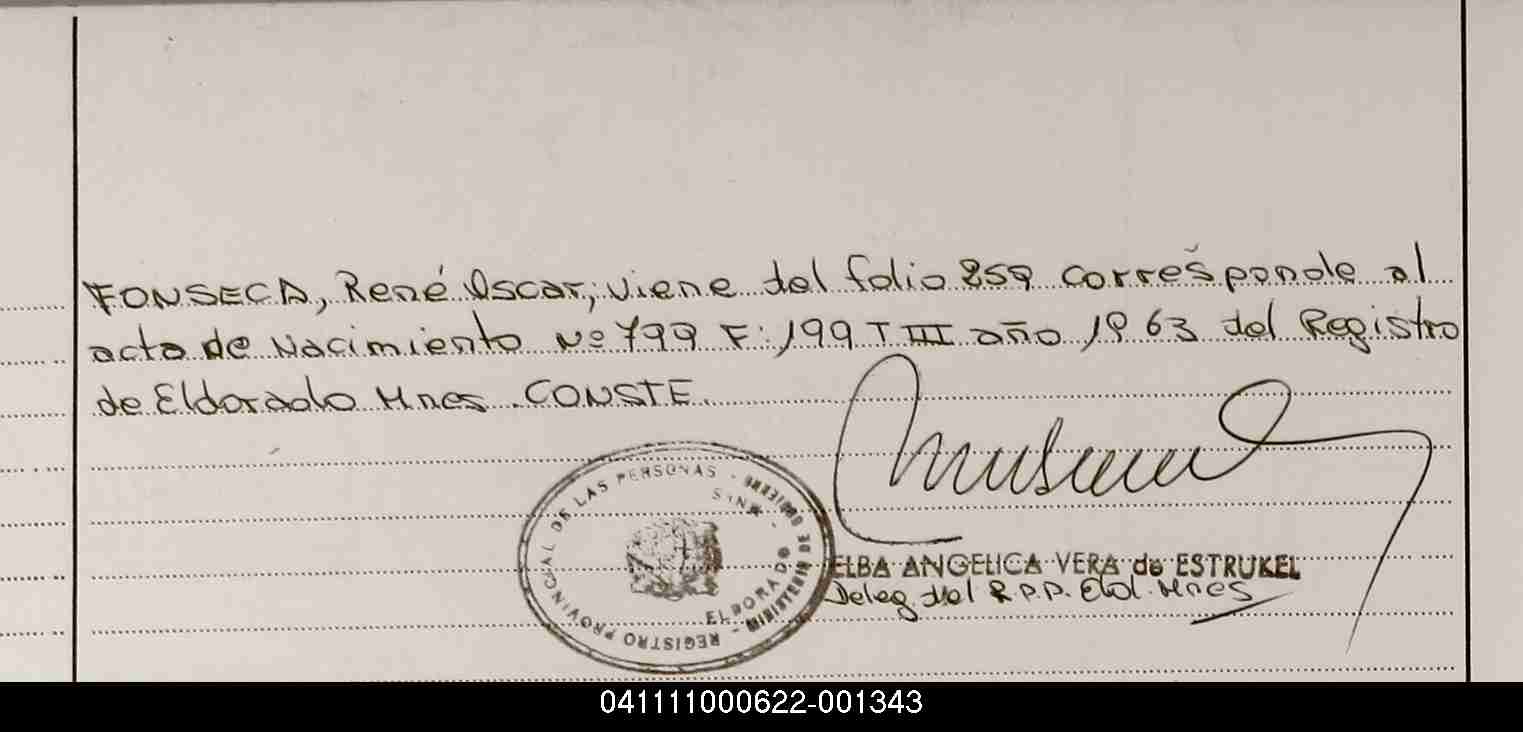 FONSECA, René Oscar, viene del folio 859 corresponde al
acta de Nacimiento Nº 799 F: 199 T III año 1963 del Registro
de Eldorado Mnes. CONSTE.
REGISTRO PROVINCIAL DE LAS PERSONAS - MINISTERIO DE GOBIERNO -
ELDORADO - MNES
ELBA ANGELICA VERA de ESTRUKEL
Deleg del R.P.P. Eld. Mnes
041111000622-001343